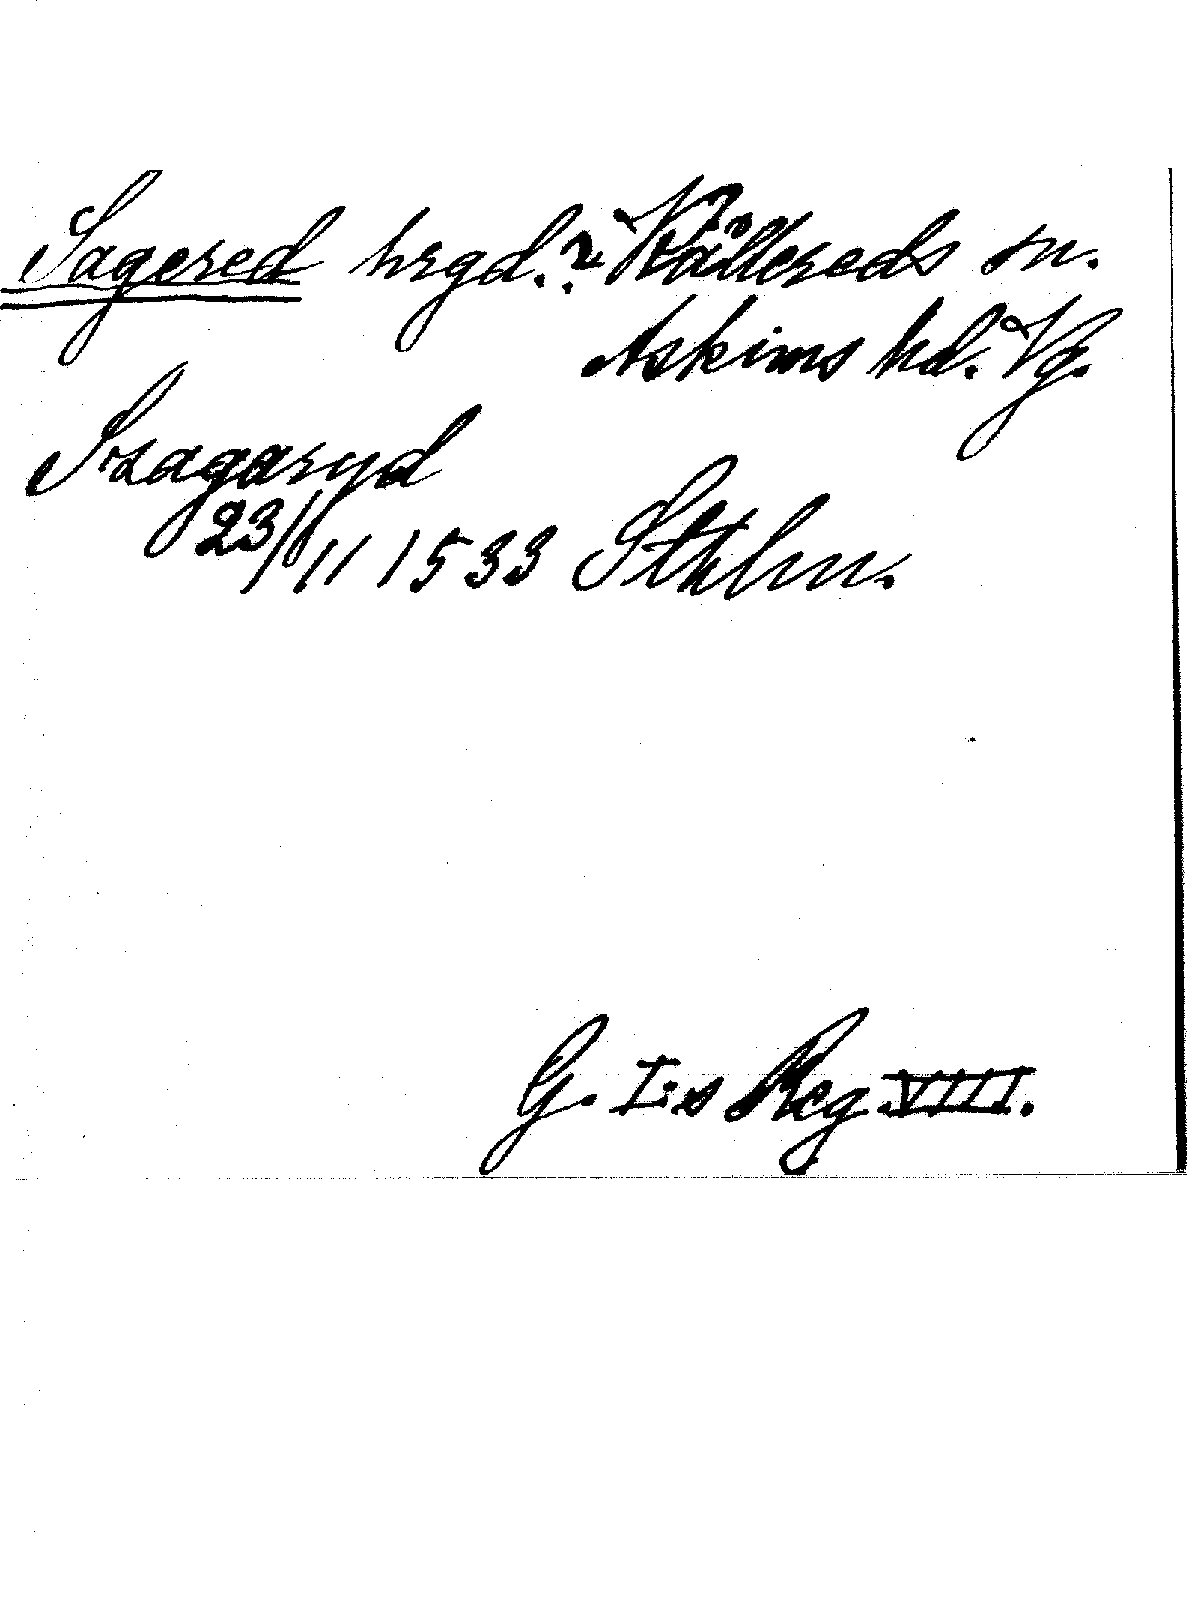 Sagered hrgd.? Kållereds sn.
Askims hd. Vg.
Szagaryd
23/11 1533 Sthlm.
G. I:s Reg VIII.